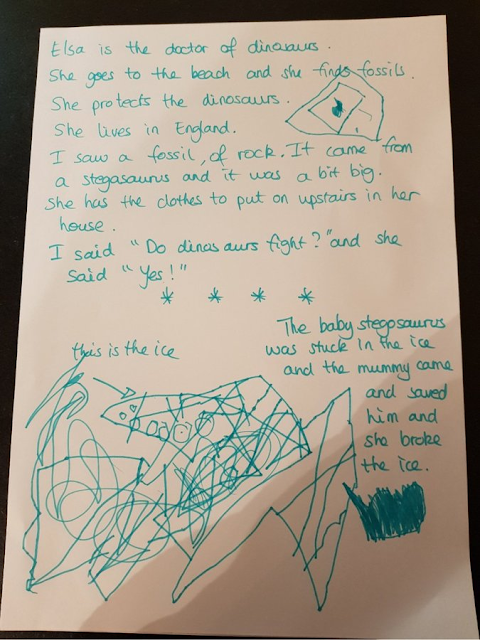 Elsa is the doctor of dinosaurs.
She goes to the beach and she finds fossils.
She protects the dinosaurs.
She lives in England.
I saw a fossil, of rock. It came from
a stegasaurus and it was a bit big.
She has the clothes to put on upstairs in her
house.
I said "Do dinosaurs fight?" and she
said "Yes!"
* * * *
The baby stegosaurus
was stuck in the ice
and the mummy came
and saved
him and
she broke
the ice.
this is the ice